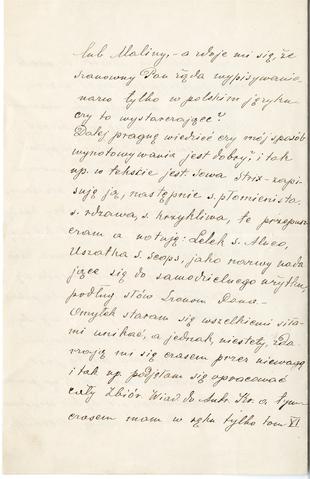 lub Maliny, - a zdaje mi się, że
Szanowny Pan żąda wypisywania
nazw tylko w polskim języku
czy to wystarczające?
Dalej pragnę wiedzieć czy mój sposób
wynotowywania jest dobry? i tak
np. w tekście jest Sowa Strix - zapi-
suję ją, następnie s. płomienista,
s. rdzawa, s. krzykliwa, te przepusz-
czam a notuję: Lelek s. Aluco,
Uszatka s. scops, jako nazwy nada
jące się do samodzielnego użytku,
podług słów Szanow. Pana. -
Omyłek staram się wszelkiemi siła-
mi unikać, a jednak, niestety, zda-
rzają mi się czasem przez nieuwagę
i tak np. podjęłam się opracować
cały Zbiór Wiad. do Antr. Kr. a tym-
czasem mam w ręku tylko tom XI